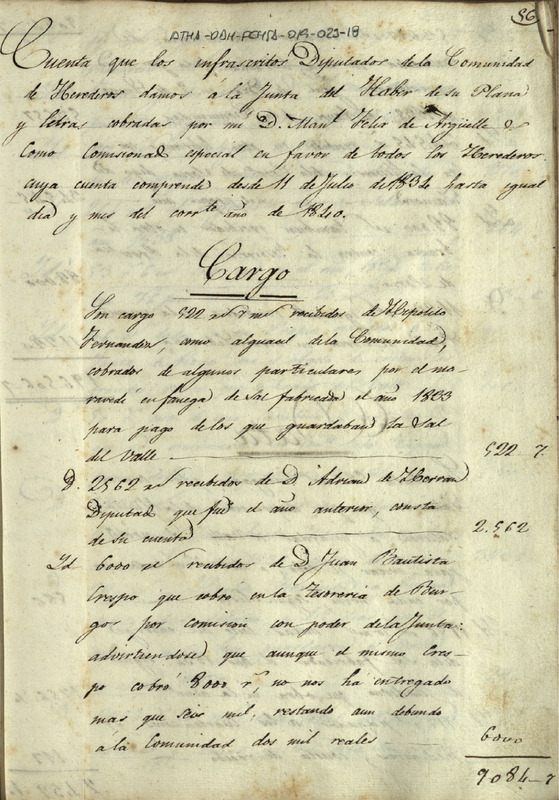 56
ATHA-DAH-FCHSA-018-023-18
Cuenta que los infrascritos Diputados de la Comunidad
de Herederos damos á la Junta del Haber de su Plana
y letras cobradas por mi D. Man.l Felir de Argüelle
Como Comisionad especial en favor de todos los Herederos
cuya cuenta comprende desde 11 de Julio de 1834 hasta igual
dia y mes del corrte año de 1840.
Cargo
Son cargo 522 rs 7 ms recibidos de Hipolito
Fernandez, como alguacil de la Comunidad,
cobrados de algunos particulares por el ma-
ravedi en fanega de sal fabricada el año 1833
para pago de los que guardaban la Sal
del Valle 522 7
D. 2562 rs recibidos de D. Adrian de Herran
Diputad que fue el año anterior, consta
de su cuenta 2.562
Yd 6000 rs recibidos de D. Juan Bautista
Crespo que cobró en la Tesoreria de Bur-
gos por comision con poder de la Junta:
advirtiendose que aunque el mismo Cres-
po cobró 8000 rs, no nos ha entregado
mas que seis mil, restando aun debiendo
a la Comunidad dos mil reales 6000
9084-7